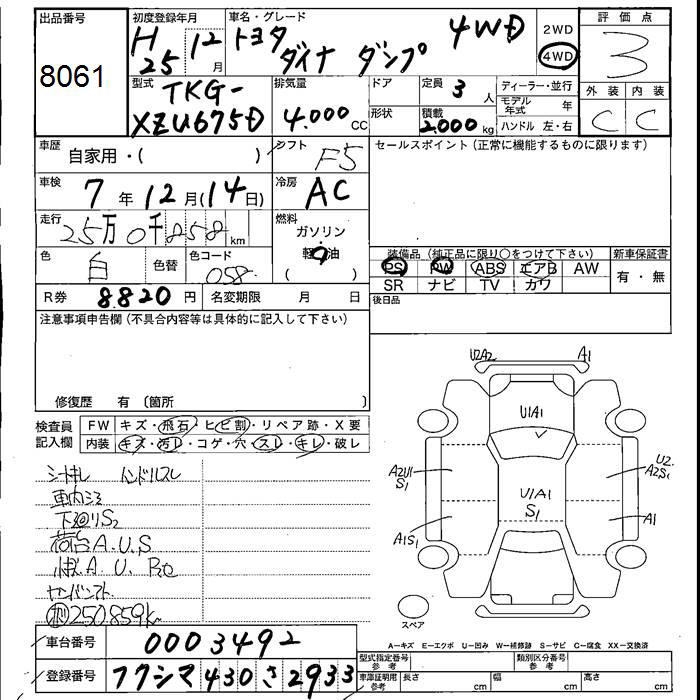 出品番号
8061
初度登録年月
H 25 12月
車名・グレード
トヨタ
ダイナ ダンプ 4WD
2WD
4WD
評価点
3
外装 内装
C C
型式
TKG-
XZU675D
排気量
4.000 CC
ドア
形状
定員 3 人
積載
2.000 kg
ディーラー・並行
モデル年式 年
ハンドル 左・右
車歴
自家用・( )
シフト
F5
セールスポイント(正常に機能するものに限ります)
車検
7年12月(14日)
冷房
AC
走行
25万0千858 km
燃料
ガソリン
軽油
( )
色
白
色替
色コード
058
装備品(純正品に限り○をつけて下さい)
PS PW ABS エアB AW
SR ナビ TV カワ
新車保証書
有・無
R券 8820円
名変期限 月 日
後日品
注意事項申告欄(不具合内容等は具体的に記入して下さい)
修復歴 有〔箇所 〕
検査員
記入欄
FW キズ・飛石・ヒビ割・リペア跡・X要
内装 キズ・汚レ・コゲ・穴・スレ・キレ・破レ
シートキレ ハンドルスレ
車内ヨゴ
下廻りS2
荷台A.U.S
A.U.
250.859k
U2A2
A1
U1A1
A2U1
S1
U1A1
S1
U2
A2S1
A1S1
A1
スペア
A-キズ E-エクボ U-凹み W-補修跡 S-サビ C-腐食 XX-交換済
車台番号
0003492
登録番号
フクシマ 430 さ 2933
型式指定番号
参考
類別区分番号
参考
車庫証明用
参考
長さ cm
幅 cm
高さ cm